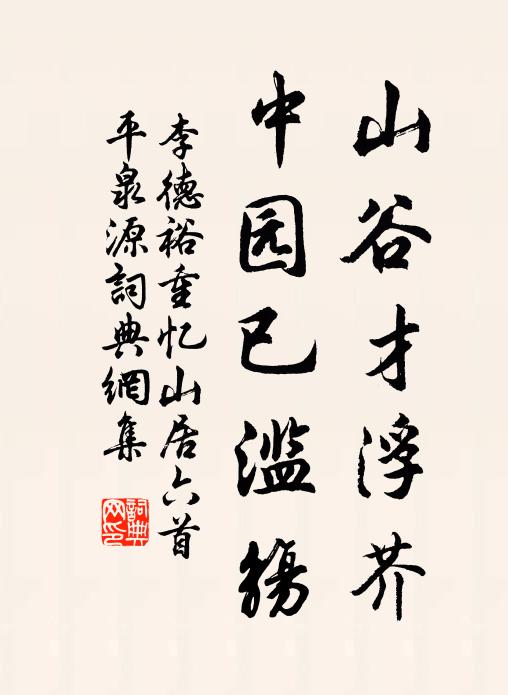 山谷才浮芥
中园已滥觴
李德裕重忆山居六首
平泉源詞典網集
詞典网印